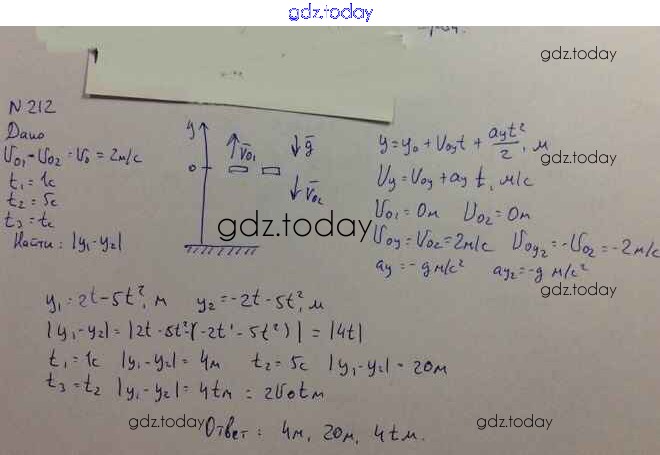 gdz.today
gdz.today
N 212
Дано
gdz.today
V₀₁ = V₀₂ = V₀ = 2м/с
t₁ = 1с
t₂ = 5с
t₃ = tс
Найти: |y₁-y₂|
y
0
V̄₀₁
ḡ
V̄₀₂
gdz.today
y = y₀ + V₀yt + ayt²/2, м
gdz.today
Vy = V₀y + ay t, м/с
V₀₁ = 0м V₀₂ = 0м
V₀y = V₀₂ = 2м/с V₀y₂ = -V₀₂ = -2м/с
ay = -g м/с² ay₂ = -g м/с²
gdz.today
y₁ = 2t - 5t², м y₂ = -2t - 5t², м
|y₁-y₂| = |2t - 5t² - (-2t - 5t²)| = |4t|
t₁ = 1с |y₁-y₂| = 4м t₂ = 5с |y₁-y₂| = 20м
t₃ = t₂ |y₁-y₂| = 4tм = 2V₀tм
gdz.today
Ответ: 4м, 20м, 4tм.
gdz.today